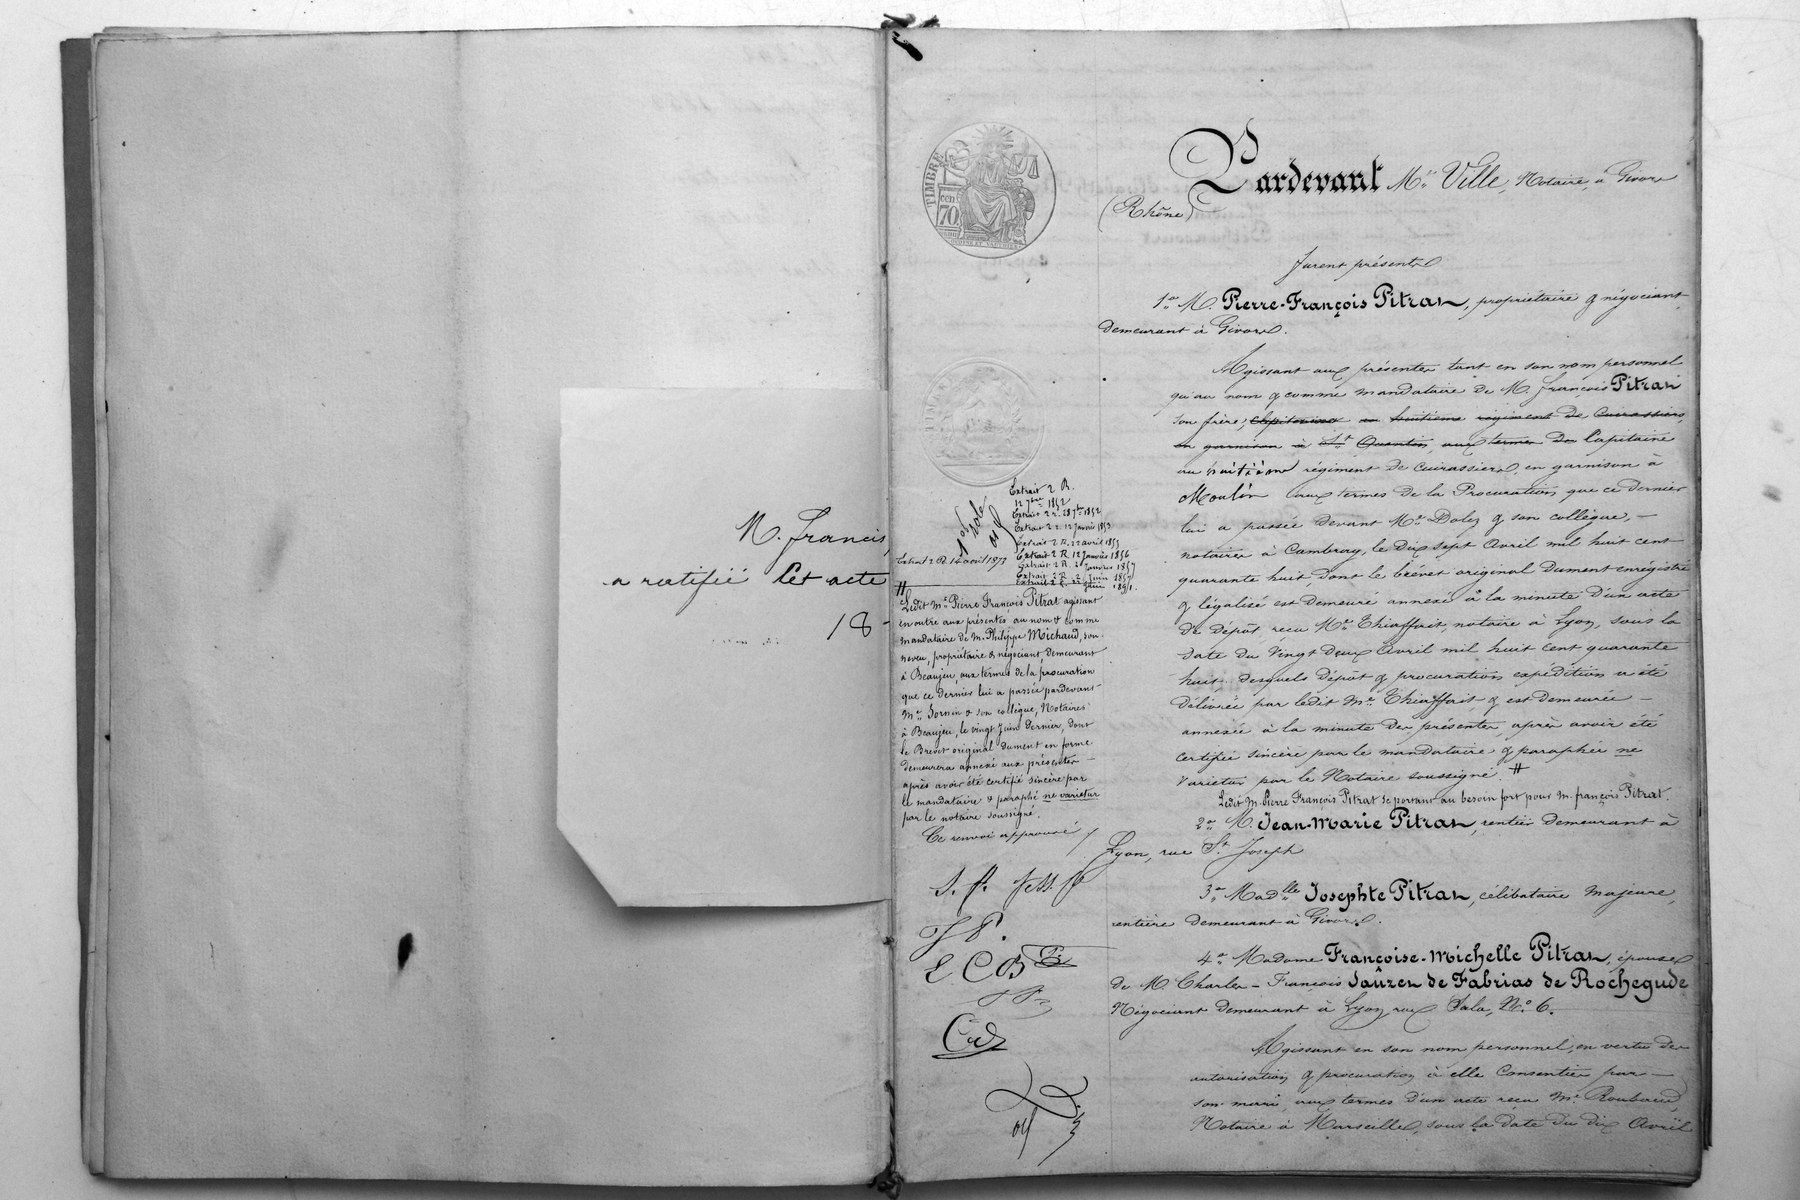 M. Francis,
a ratifié Cet acte
18
TIMBRE
cen
70
Extrait 2 R.
12 7bre 1852
Extrait 2 r. 28 7bre 1852
Extrait 2 r. 12 Janvier 1853
Extrait 2 R. 22 avril 1853
Extrait 2 R 12 Janvier 1856
Extrait 2 R. 2 Janvier 1857
Extrait 2 R. 2 Juin 1857
Extrait 2 R 14 aout 1873
Ledit Mr. Pierre François Pitrat agissant
en outre aux présentes au nom & comme
mandataire de M. Philippe Michaud, son
neveu, propriétaire & négociant, demeurant
à Beaujeu, aux termes de la procuration
que ce dernier lui a passée pardevant
Me. Sornin & son collègue, Notaires
à Beaujeu, le vingt Juin dernier, dont
le Brevet original dument en forme
demeurera annexé aux présentes
après avoir été certifié sincère par
le mandataire & paraphé ne varietur
par le notaire soussigné.
Ce renvoi approuvé
Pardevant Me. Ville, Notaire, à Givors
(Rhône)
Furent présents
1o. M. Pierre-François Pitrat, propriétaire & négociant,
demeurant à Givors.
Agissant aux présentes tant en son nom personnel
qu'au nom & comme mandataire de M. François Pitrat
son frère, Capitaine au huitième régiment de Cuirassiers,
en garnison à St. Quentin, aux termes de Capitaine
au huitième régiment de Cuirassiers, en garnison à
Moulin aux termes de la Procuration que ce dernier
lui a passée devant Me. Dolez & son collègue, -
notaires à Cambray, le dix sept Avril mil huit cent
quarante huit, dont le brévet original dument enregistré
& légalisé est demeuré annexé à la minute d'un acte
de dépôt, reçu Me. Thiaffait, notaire à Lyon, sous la
date du vingt deux Avril mil huit cent quarante
huit, desquels dépôt & procuration expédition a été
délivrée par ledit Me. Thiaffait, & est demeurée
annexée à la minute des présentes après avoir été
certifiée sincère par le mandataire & paraphée ne
varietur par le Notaire soussigné. #
Ledit M. Pierre François Pitrat se portant au besoin fort pour M. françois Pitrat.
2o. M. Jean-Marie Pitrat, rentier demeurant à
Lyon, rue St. Joseph
3o. Madlle Josephte Pitrat, célibataire majeure,
rentière demeurant à Givors.
4o. Madame Françoise-Michelle Pitrat, épouse
de M. Charles-François Sauzen de Fabrias de Rochegude
Négociant demeurant à Lyon, rue Sala, No. 6.
Agissant en son nom personnel, en vertu des
autorisation & procuration à elle Consenties par -
son mari, aux termes d'un acte reçu Me. Roubaud,
Notaire à Marseille, sous la date du dix Avril